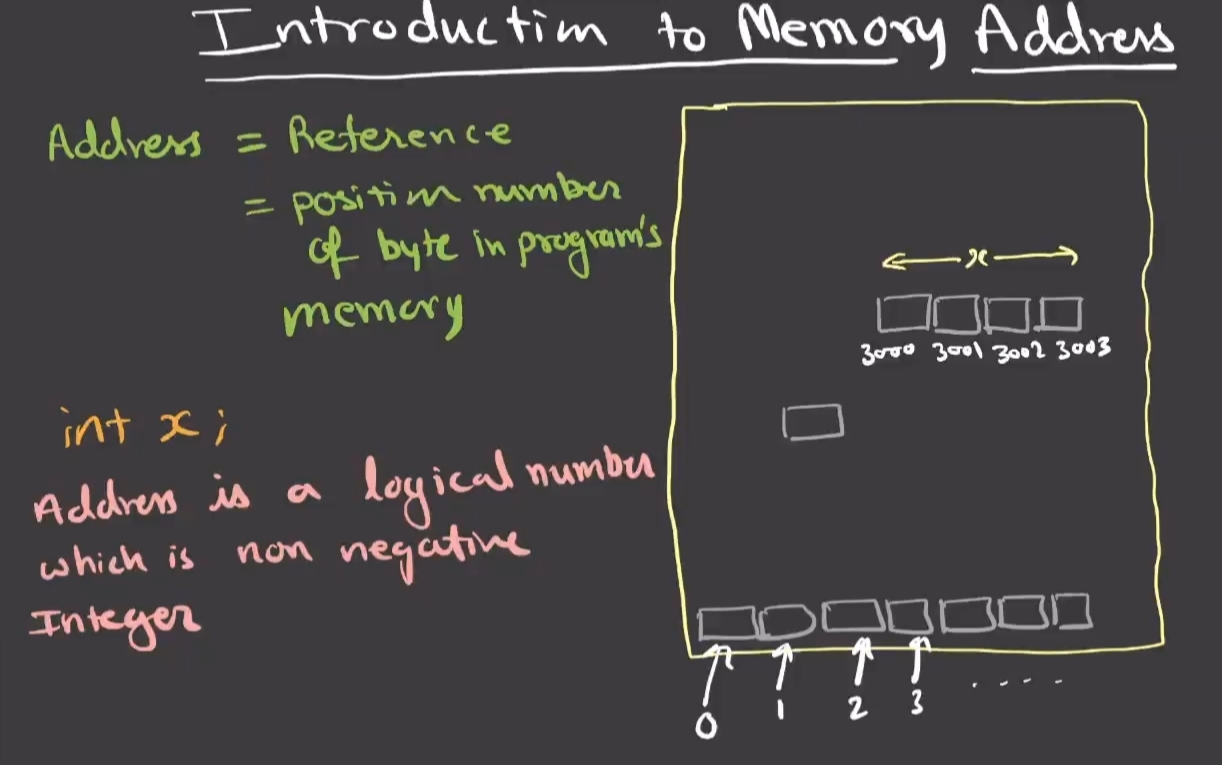 Introduction to Memory Address
Address = Reference
= position number
of byte in program's
memory
int x;
Address is a logical number
which is non negative
Integer
x
3000 3001 3002 3003
0 1 2 3 ....